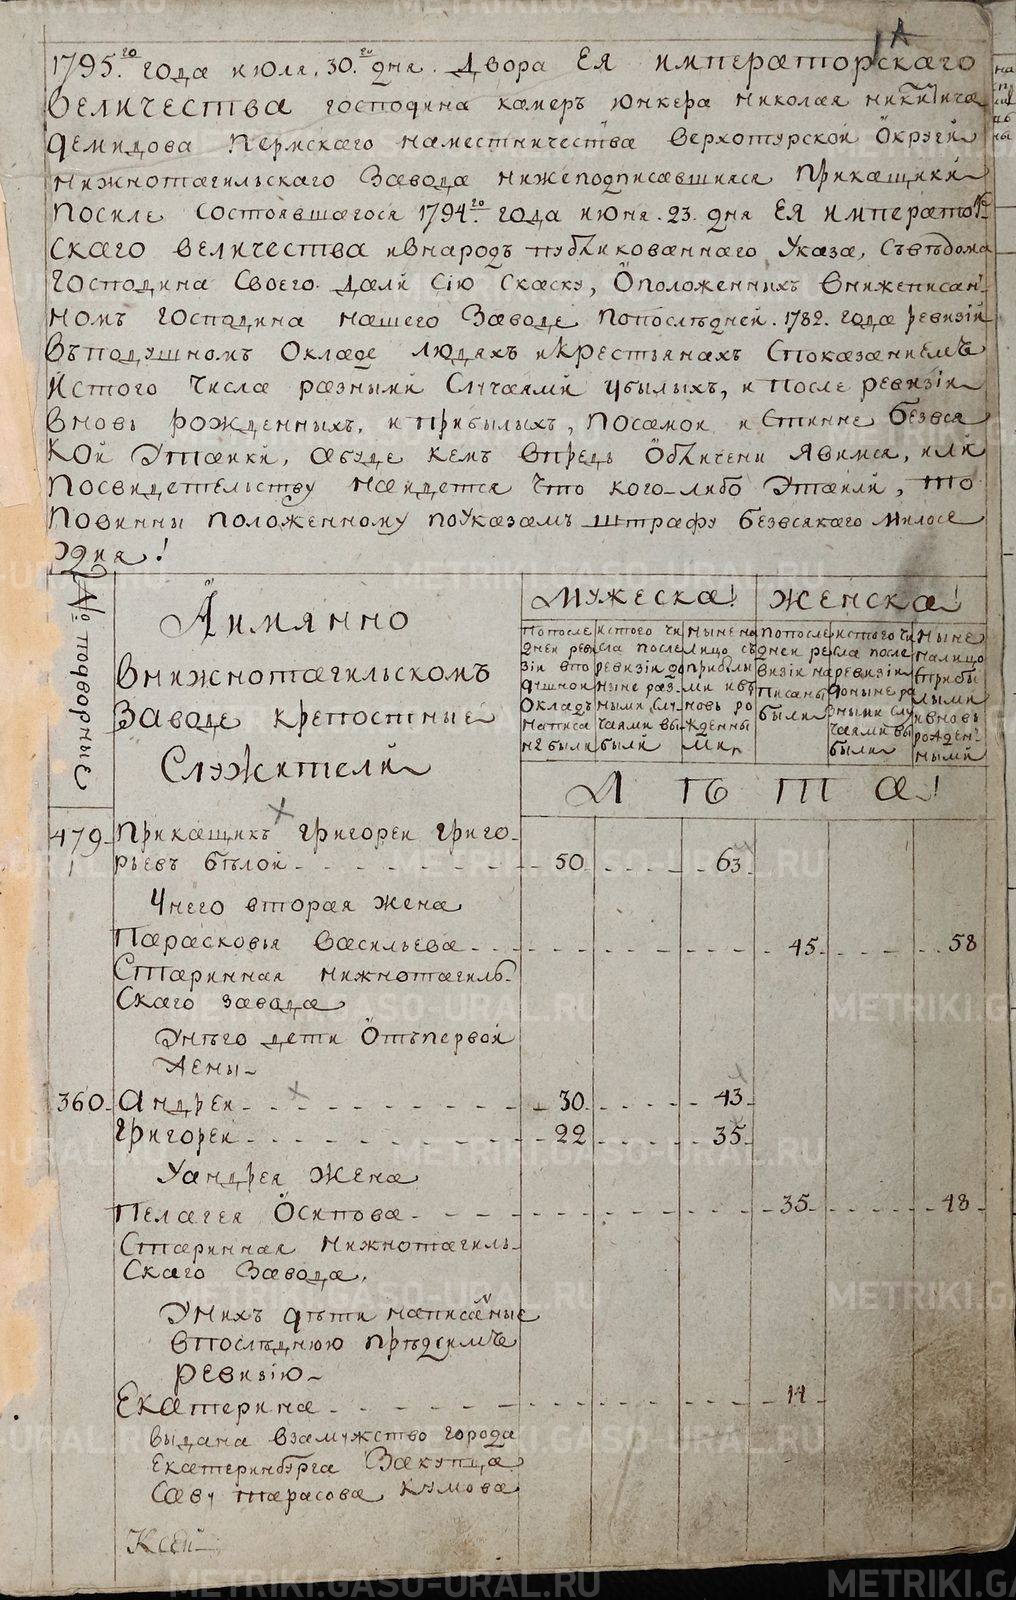 1А
1795.го года июля. 30.го дня. Двора Ея императорскаго
Величества господина камеръ юнкера николая никитича
демидова Пермскаго наместничества верхотурской Округи
нижнотагильскаго Завода нижеподписавшияся Прикащики
Посиле состоявшагося 1794го. года июня. 23. дня Ея императо
скаго величества ивнародъ публикованнаго Указа, Съведома
господина Своего дали Сію Скаску, Оположенныхъ внижеписан
номъ господина нашего Заводе Попоследней. 1782. года ревизіи
въподушномъ Окладе людяхъ икрестьянахъ Споказаниемъ
Истого числа разными Случаями убылыхъ, и после ревизіи
вновь рожденныхъ, и прибылыхъ, Посамои истинне безвся
кой Утаики, абуде кемъ впредь Обличени Явимся, или
Посвидетельству наидется что кого-либо Утаили, то
Повинны положенному поУказамъ штрафу безвсякаго милосе
рдия!
№ подворные
Аимянно
внижнотагильскомъ
Заводе крепостные
Служители
Мужеска!
Женска!
Попосле
дней реви
зіи впо
душной
Окладъ
написа
ны были
Истого чи
сла после
ревизіи до
ныне раз
ными слу
чаями вы
были
Ныне на
лицо съ
прибылы
ми ивъ
новь ро
жденны
ми
Попосле
дней ре
визіи на
писаны
были
Истого чи
сла после
ревизіи
доныне ра
зными слу
чаями вы
были
Ныне
налицо
сприбы
лыми
ивновь
рожден
ными
Лѣта!
479. Прикащикъ григореи григо
1 рьевъ белои - 50 - 63
Унего вторая жена
Парасковья васильева - 45 - 58
Старинная нижнотагиль
Скаго завода
Унего дети Отъпервой
жены
360. Андреи - 30 - 43
Григореи - 22 - 35
Уандрея жена
Пелагея Осипова - 35 - 48
Старинная нижнотагиль
Скаго Завода,
Унихъ дети написанные
впоследнюю предсимъ
ревизію
Екатерина - 14
выдана взамужство города
Екатеринбурга Закупца
Саву тарасова кумова
Ксен
METRIKI.GASO-URAL.RU